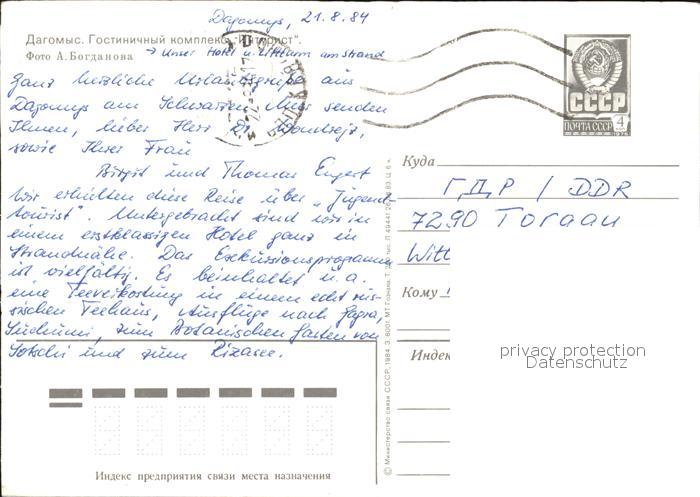 Dagomys, 21.8.84
Дагомыс. Гостиничный комплекс "Интурист".
Фото А.Богданова
→ Unser Hotel u. Liftturm am Strand
Ganz herzliche Urlaubsgrüße aus
Dagomys am Schwarzen Meer senden
Ihnen, lieber Herr Dr.
sowie Ihrer Frau
Birgit und Thomas
Wir erhielten diese Reise über „Jugend-
tourist". Untergebracht sind wir in
einem erstklassigen Hotel ganz in
Strandnähe. Das Exkursionsprogramm
ist vielfältig. Es beinhaltet u. a.
eine Teeverkostung in einem echt rus-
sischen Teehaus, Ausflüge nach Gagra,
Suchumi, zum Botanischen Garten von
Sotschi und zum Rizasee.
СССР
ПОЧТА СССР
4
Куда
ГДР / DDR
7290 Torgau
Witt
Кому
Индек
privacy protection
Datenschutz
Индекс предприятия связи места назначения
© Министерство связи СССР, 1984. З.